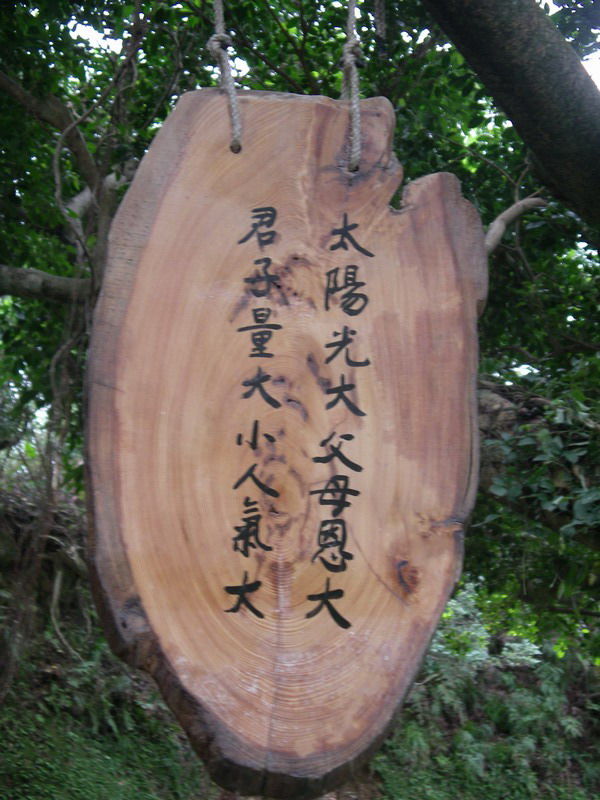 太陽光大父母恩大
君子量大小人氣大